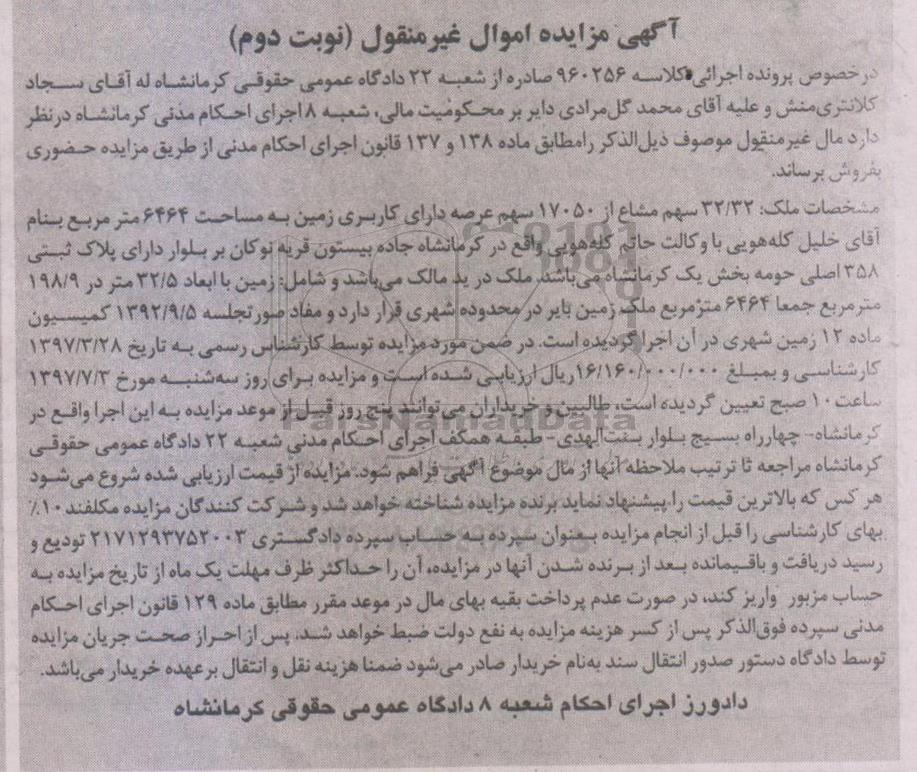 آگهی مزایده اموال غیرمنقول (نوبت دوم)
درخصوص پرونده اجرائی کلاسه ۹۶۰۲۵۶ صادره از شعبه ۲۲ دادگاه عمومی حقوقی کرمانشاه له آقای سجاد
کلانتری‌منش و علیه آقای محمد گل‌مرادی دایر بر محکومیت مالی، شعبه ۸ اجرای احکام مدنی کرمانشاه درنظر
دارد مال غیرمنقول موصوف ذیل‌الذکر رامطابق ماده ۱۳۸ و ۱۳۷ قانون اجرای احکام مدنی از طریق مزایده حضوری
بفروش برساند.
مشخصات ملک: ۳۲/۳۲ سهم مشاع از ۱۷۰۵۰ سهم عرصه دارای کاربری زمین به مساحت ۶۴۶۴ متر مربع بنام
آقای خلیل کله‌هویی با وکالت حاتم کله‌هویی واقع در کرمانشاه جاده بیستون قریه نوکان بر بلوار دارای پلاک ثبتی
۳۵۸ اصلی حومه بخش یک کرمانشاه می‌باشد. ملک در ید مالک می‌باشد و شامل: زمین با ابعاد ۳۲/۵ متر در ۱۹۸/۹
مترمربع جمعا ۶۴۶۴ مترمربع ملک زمین بایر در محدوده شهری قرار دارد و مفاد صورتجلسه ۱۳۹۲/۹/۵ کمیسیون
ماده ۱۲ زمین شهری در آن اجرا گردیده است. در ضمن مورد مزایده توسط کارشناس رسمی به تاریخ ۱۳۹۷/۳/۲۸
کارشناسی و بمبلغ ۱۶/۱۶۰/۰۰۰/۰۰۰ریال ارزیابی شده است و مزایده برای روز سه‌شنبه مورخ ۱۳۹۷/۷/۳
ساعت ۱۰ صبح تعیین گردیده است. طالبین و خریداران می‌توانند پنج روز قبل از موعد مزایده به این اجرا واقع در
کرمانشاه- چهارراه بسیج بلوار بنت‌الهدی- طبقه همکف اجرای احکام مدنی شعبه ۲۲ دادگاه عمومی حقوقی
کرمانشاه مراجعه تا ترتیب ملاحظه آنها از مال موضوع آگهی فراهم شود. مزایده از قیمت ارزیابی شده شروع می‌شود
هر کس که بالاترین قیمت را پیشنهاد نماید برنده مزایده شناخته خواهد شد و شرکت کنندگان مزایده مکلفند ۱۰٪
بهای کارشناسی را قبل از انجام مزایده بعنوان سپرده به حساب سپرده دادگستری ۲۱۷۱۲۹۳۷۵۲۰۰۳ تودیع و
رسید دریافت و باقیمانده بعد از برنده شدن آنها در مزایده، آن را حداکثر ظرف مهلت یک ماه از تاریخ مزایده به
حساب مزبور واریز کند، در صورت عدم پرداخت بقیه بهای مال در موعد مقرر مطابق ماده ۱۲۹ قانون اجرای احکام
مدنی سپرده فوق‌الذکر پس از کسر هزینه مزایده به نفع دولت ضبط خواهد شد. پس از احراز صحت جریان مزایده
توسط دادگاه دستور صدور انتقال سند به‌نام خریدار صادر می‌شود ضمنا هزینه نقل و انتقال برعهده خریدار می‌باشد.
دادورز اجرای احکام شعبه ۸ دادگاه عمومی حقوقی کرمانشاه
ParsNamadData